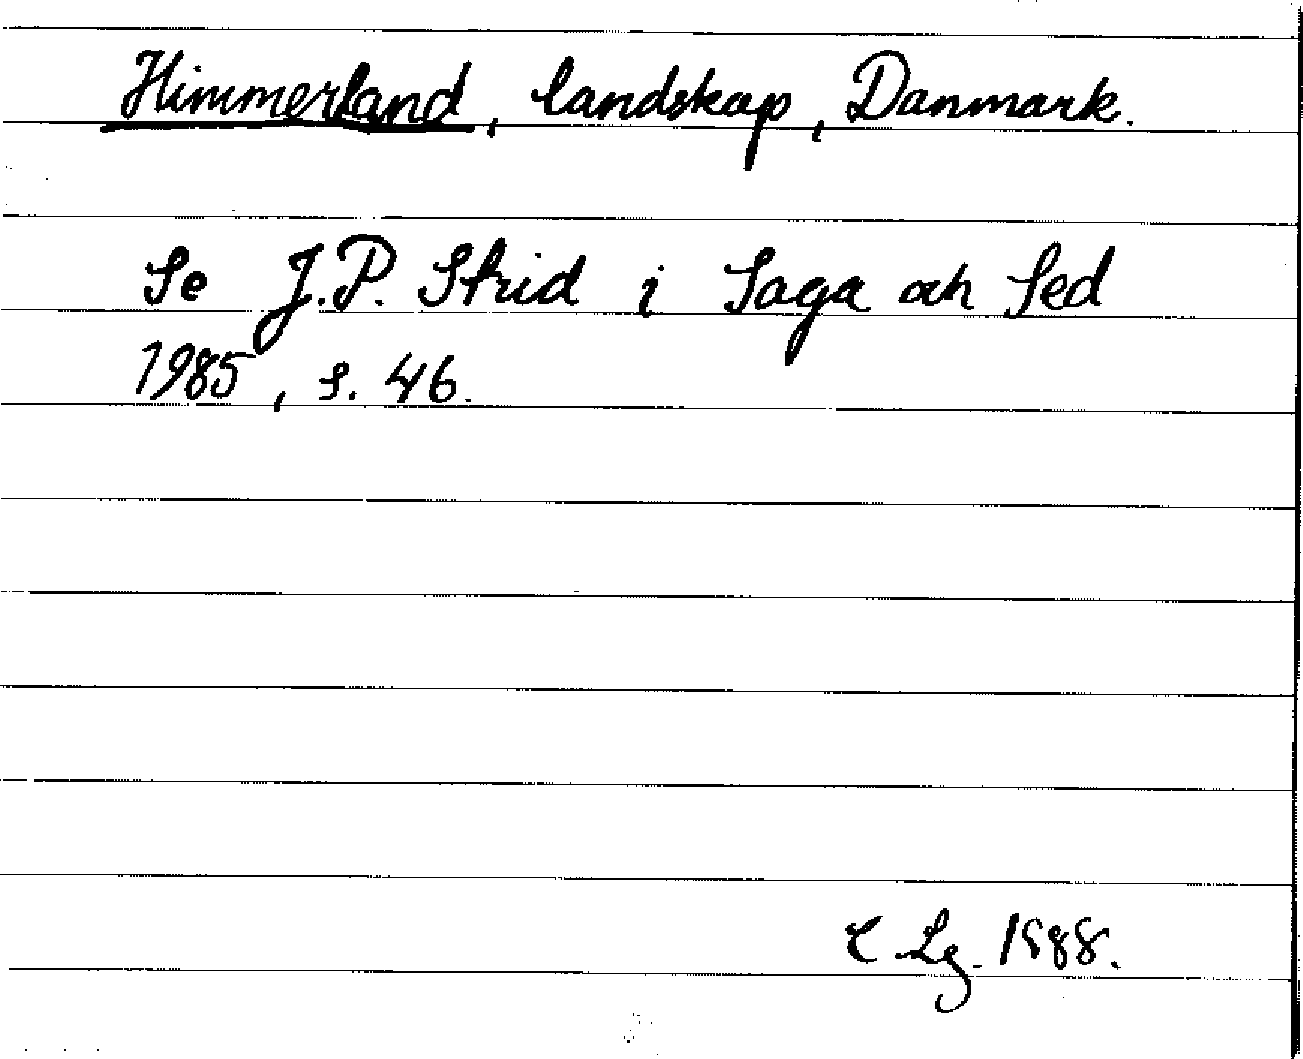 Himmerland, landskap, Danmark.
Se J.P. Strid i Saga och Sed
1985, s. 46.
E Lg. 1988.